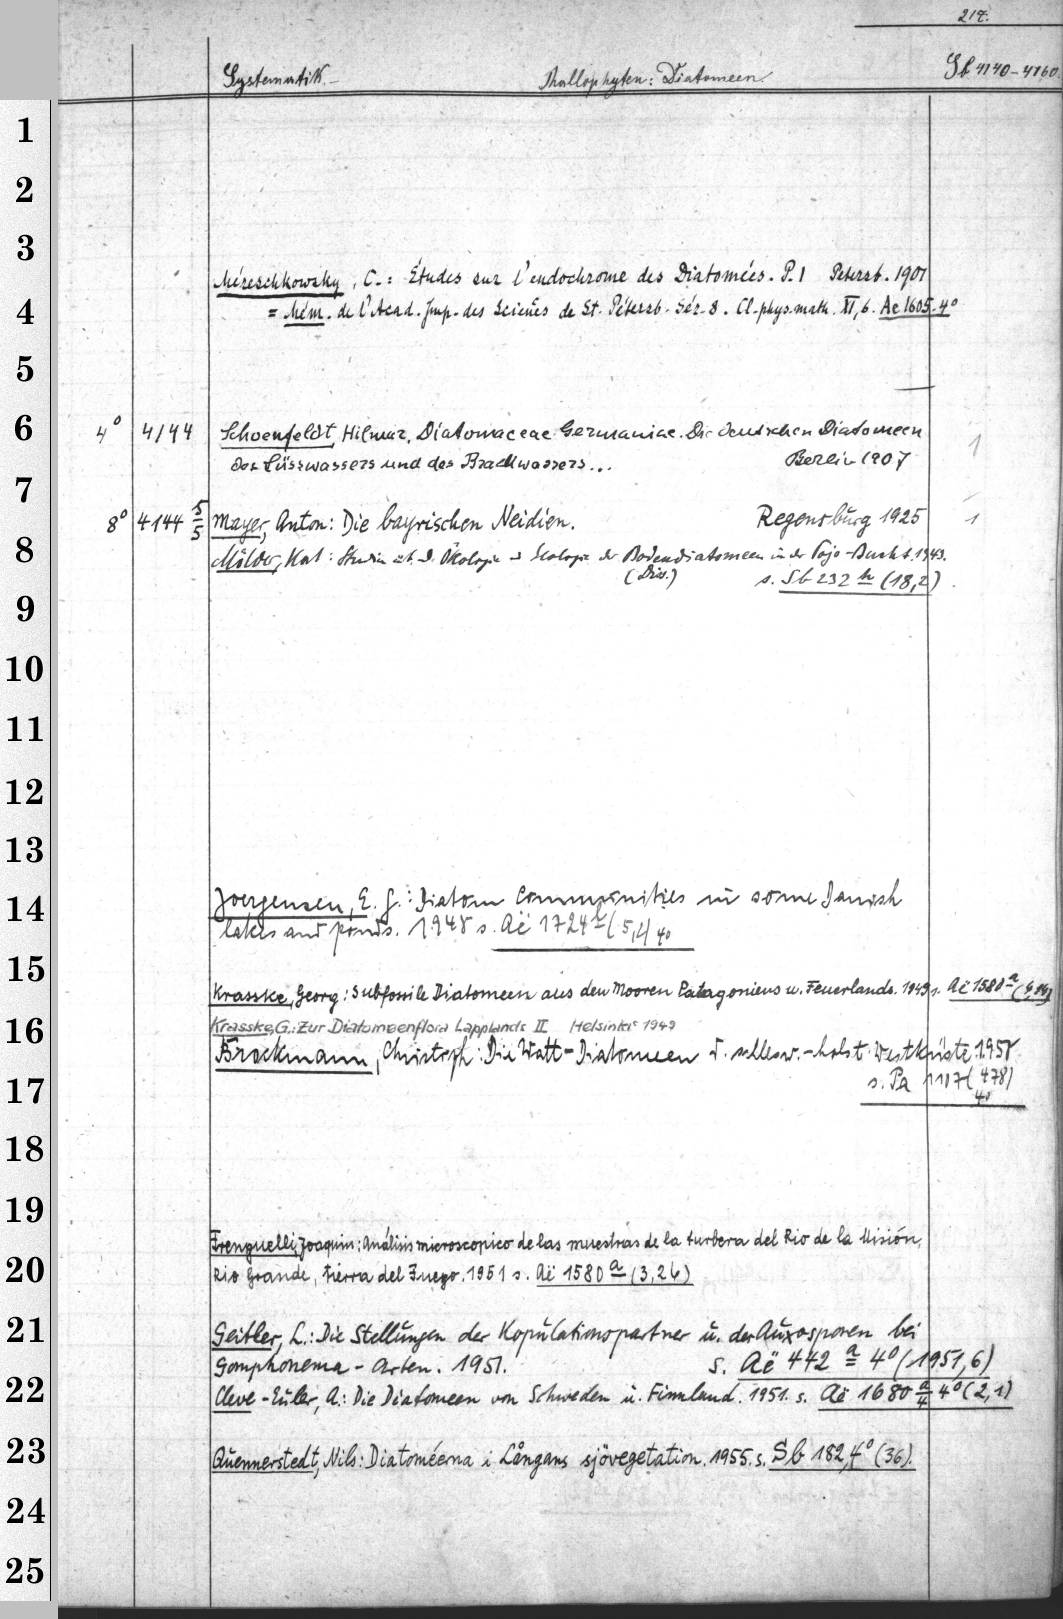 217.
Systematik.- Thallophyten: Diatomeen. Sb 4140-4160
1
2
3
Méreschkowsky, C.: Études sur l'endochrome des Diatomées. P.1 Petersb. 1901
4
= Mém. de l'Acad. Imp. des Sciences de St. Pétersb. Sér. 8. Cl. phys. math. XI, 6. Ac 1605. 4°
5
6
4° 4144 Schoenfeldt, Hilmar, Diatomaceae Germaniae. Die deutschen Diatomeen 1
des Süsswassers und des Brackwassers... Berlin 1907
7
8° 4144 5/5 Mayer, Anton: Die bayrischen Neidien. Regensburg 1925 1
8
Mölder, Karl: Studien üb. d. Ökologie u. Geologie der Bodendiatomeen in der Pojo-Bucht. 1943.
(Diss.) s. Sb 232 h (18,2)
9
10
11
12
13
14
Joergensen, E. G.: Diatom Communities in some Danish
lakes and ponds. 1948 s. Aë 1724 a (5,2) 4°
15
Krasske, Georg: Subfossile Diatomeen aus den Mooren Patagoniens u. Feuerlands. 1949 s. Aë 1580 a
16
Krasske, G.: Zur Diatomeenflora Lapplands II Helsinki 1949
Brockmann, Christoph: Die Watt-Diatomeen d. schlesw.-holst. Westküste. 1950
17
s. Pa 1107 (478)
4°
18
19
Frenguelli, Joaquin: Análisis microscopico de las muestras de la turbera del Rio de la Misión,
20
Rio Grande, tierra del Fuego. 1951 s. Aë 1580 a (3,26)
21
Geitler, L.: Die Stellungen der Kopulationspartner u. der Auxosporen bei
Gomphonema-Arten. 1951. s. Aë 442 a 4° (1951,6)
22
Cleve-Euler, A.: Die Diatomeen von Schweden u. Finnland. 1951. s. Aë 1680 a/4 4° (2,1)
23
Quennerstedt, Nils: Diatoméerna i Långans sjövegetation. 1955. s. Sb 182, 4° (36).
24
25